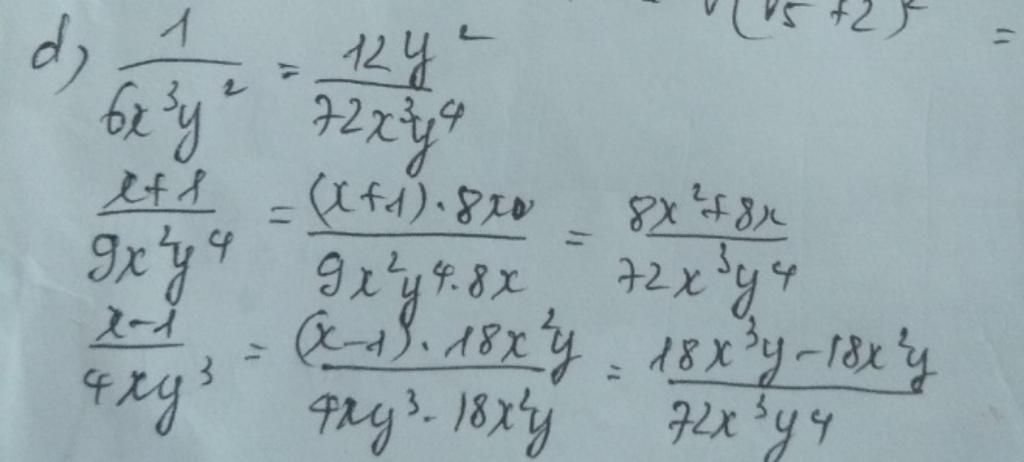 √(√5 +2)² =
d) 1/(6x³y²) = 12y²/(72x³y⁴)
(x+1)/(9x²y⁴) = ((x+1)·8x)/(9x²y⁴·8x) = (8x²+8x)/(72x³y⁴)
(x-1)/(4xy³) = ((x-1)·18x²y)/(4xy³·18x²y) = (18x³y-18x²y)/(72x³y⁴)